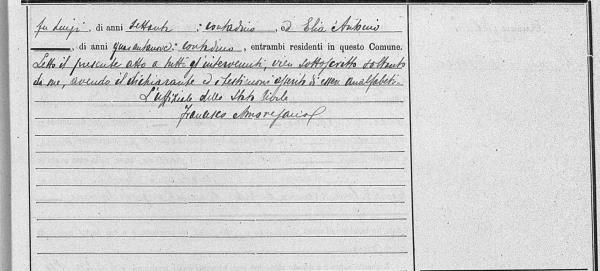 fu Luigi, di anni settanta : contadino, ed Elia Antonio
, di anni quarantanove : contadino, entrambi residenti in questo Comune.
Letto il presente atto a tutti gl'intervenuti, vien sottoscritto soltanto
da me, avendo il dichiarante ed i testimoni asserito di esser analfabeti.
L'uffiziale dello Stato Civile
Francesco